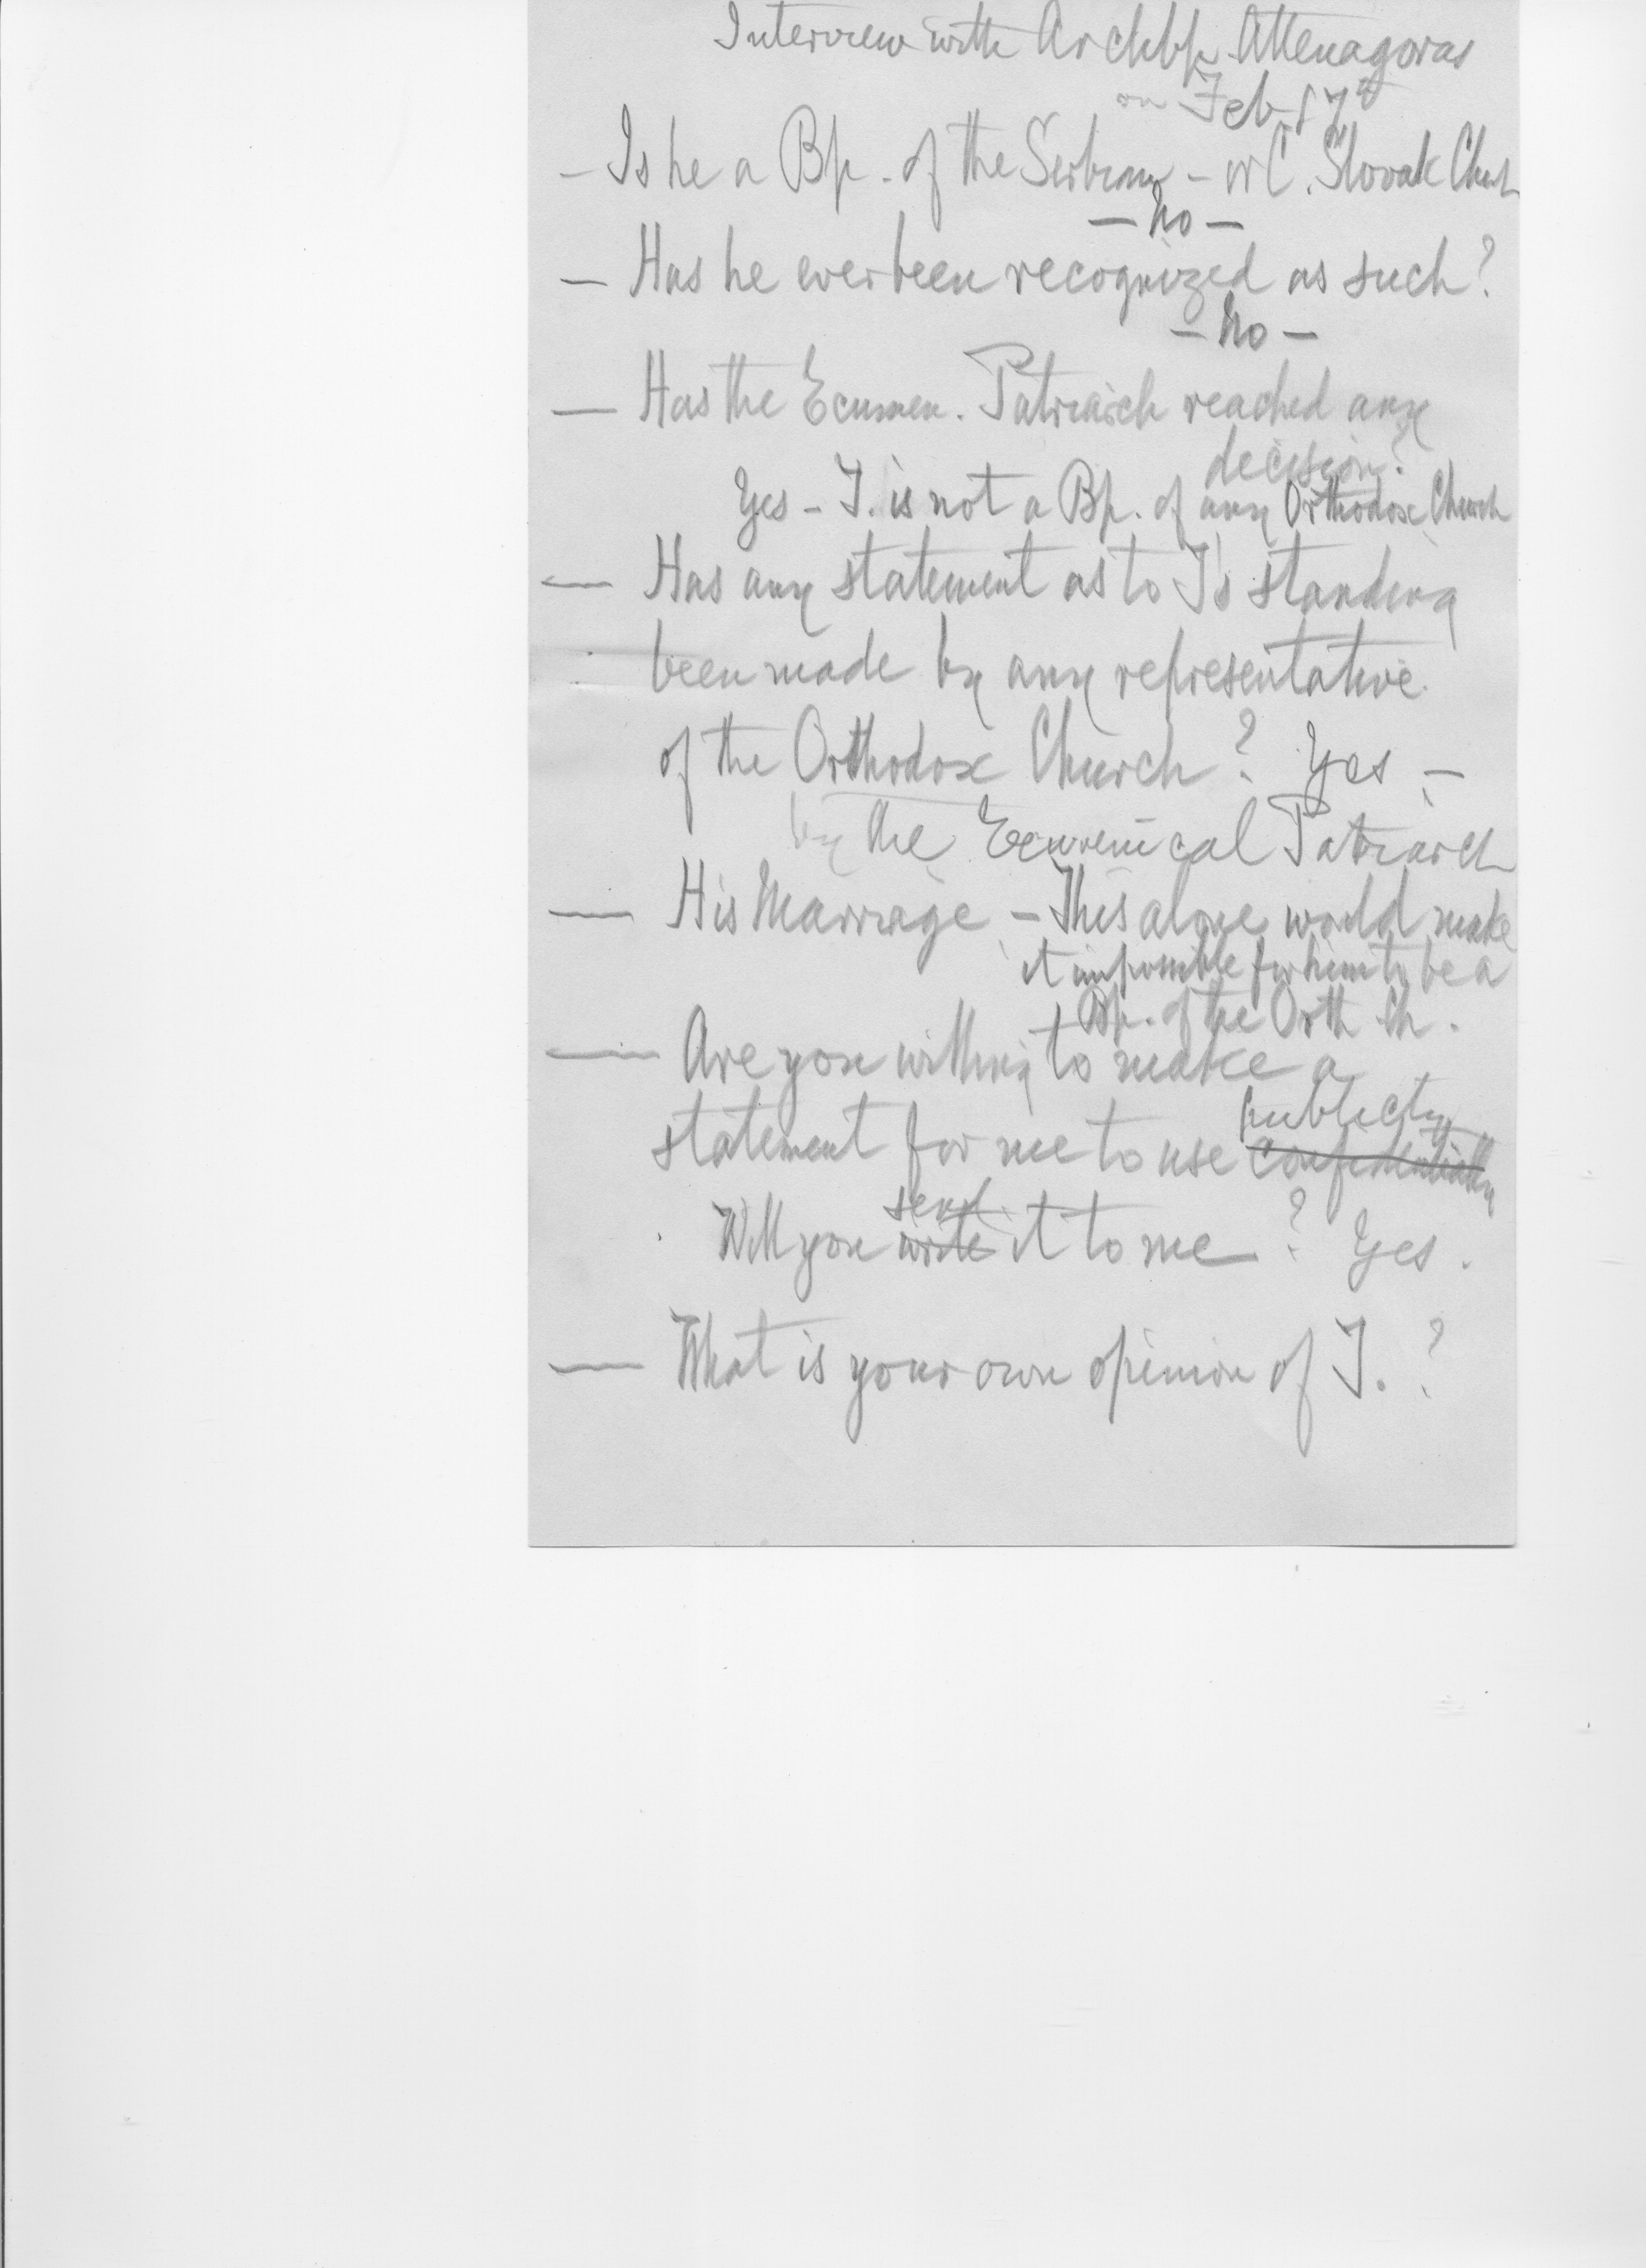 Interview with Archbp. Attenagoras
on Feb 17th
— Is he a Bp. of the Serbian - or C. Slovak Church
— No —
— Has he ever been recognized as such?
— No —
— Has the Ecumen. Patriarch reached any
decision?
Yes - J. is not a Bp. of any Orthodox Church
— Has any statement as to J's standing
been made by any representative
of the Orthodox Church? Yes —
by the Ecumenical Patriarch
— His Marriage - This alone would make
it impossible for him to be a
Bp. of the Orth Ch.
— Are you willing to make a
publicly
statement for me to use confidentially
send
Will you write it to me? Yes.
— What is your own opinion of J.?